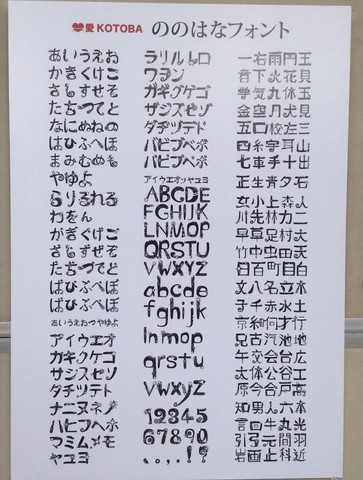 愛KOTOBA ののはなフォント
あいうえお
かきくけこ
さしすせそ
たちつてと
なにぬねの
はひふへほ
まみむめも
やゆよ
らりるれろ
わをん
がぎぐげご
ざじずぜぞ
だぢづでど
ばびぶべぼ
ぱぴぷぺぽ
ぁぃぅぇぉっゃゅょ
アイウエオ
カキクケコ
サシスセソ
タチツテト
ナニヌネノ
ハヒフヘホ
マミムメモ
ヤユヨ
ラリルレロ
ワヲン
ガギグゲゴ
ザジズゼゾ
ダヂヅデド
バビブベボ
パピプペポ
ァィゥェォッャュョ
ABCDE
FGHIJK
LMNOP
QRSTU
VWXYZ
abcde
fghijk
lmnop
qrstu
vwxyz
12345
67890
、。,.!?
一右雨円王
音下火花貝
学気九休玉
金空月犬見
五口校左三
四糸字耳山
七車手十出
正生青夕石
女小上森人
川先林力二
早草足村大
竹中虫田天
日百町目白
文八名立木
子千赤水土
京絵何才行
兄古汽池地
午交会台広
太体公谷工
原今合戸高
知男入六本
言四牛丸光
引弓元間羽
岩画止科近